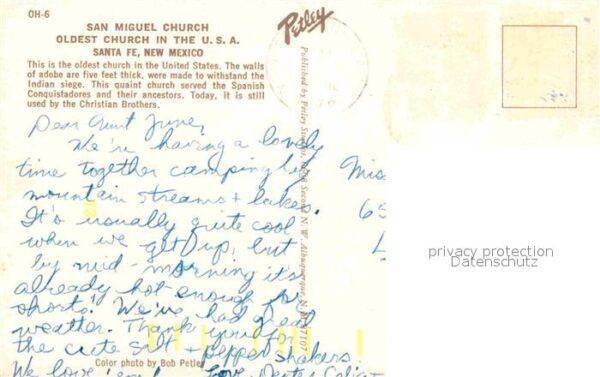 OH-6
SAN MIGUEL CHURCH
OLDEST CHURCH IN THE U. S. A.
SANTA FE, NEW MEXICO
This is the oldest church in the United States. The walls
of adobe are five feet thick, were made to withstand the
Indian siege. This quaint church served the Spanish
Conquistadores and their ancestors. Today, it is still
used by the Christian Brothers.
Petley
Published by Petley Studios, Second N. W., Albuquerque, N. M. 87107
Dear Aunt June,
We're having a lovely
time together camping by
mountain streams + lakes.
It's usually quite cool
when we get up, but
by mid-morning it's
already hot enough for
shorts! We've had great
weather. Thank you for
the cute salt + pepper shakers.
We love 'em! Love,
Color photo by Bob Petley
Miss
65
privacy protection
Datenschutz